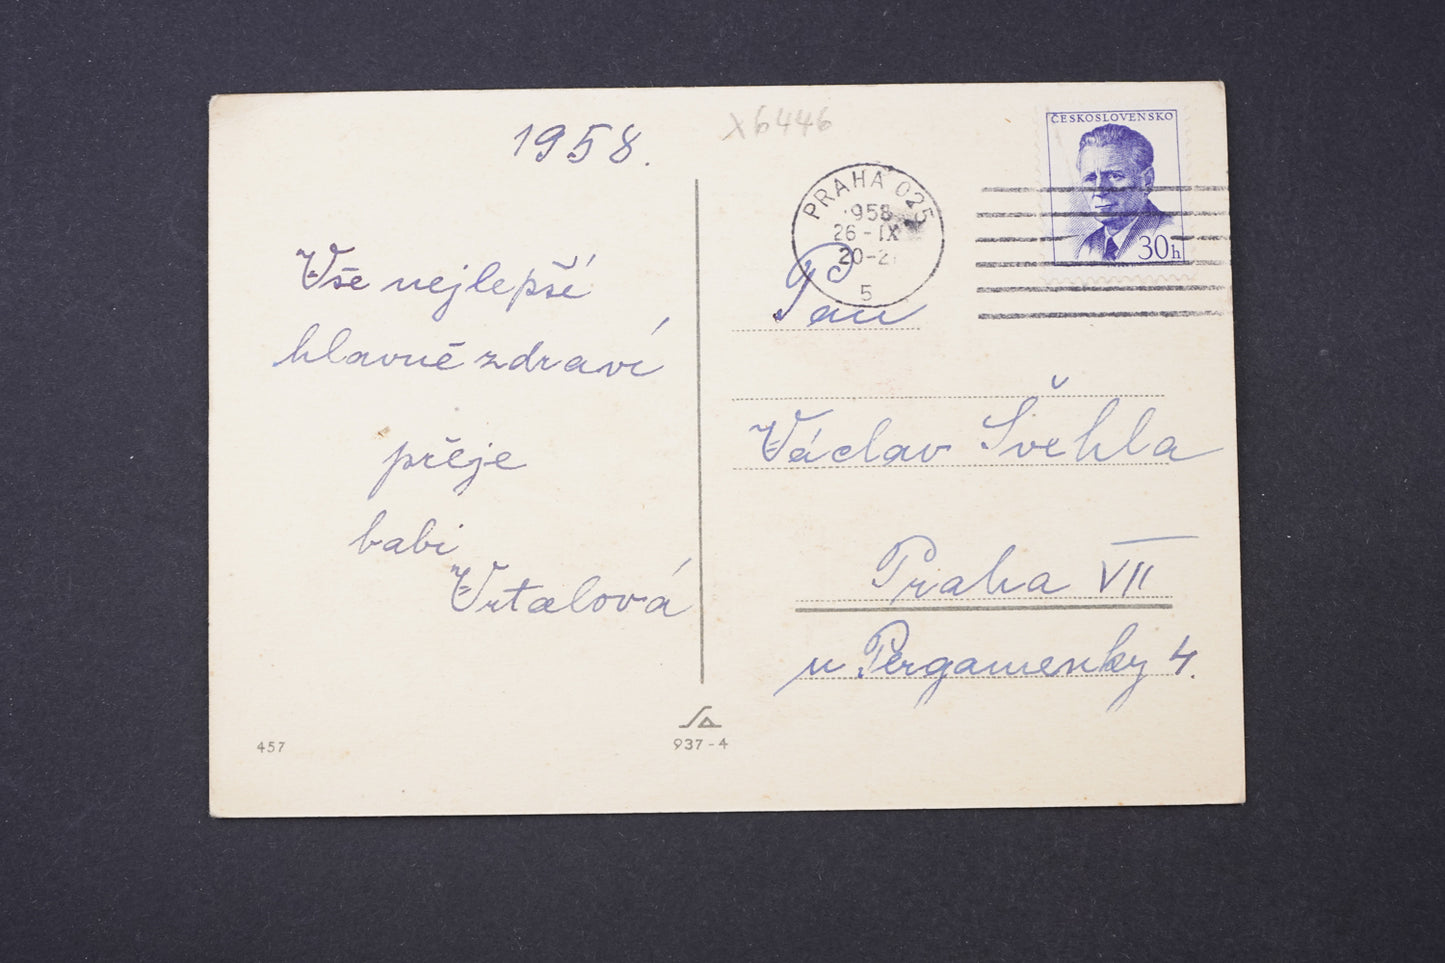 1958.
Vše nejlepší
hlavně zdraví
přeje
babi
Vrtalová
457
937-4
X6446
ČESKOSLOVENSKO
30h
PRAHA 025
958
26-IX
20-2
5
Pan
Václav Švehla
Praha VII
u Pergamenky 4.